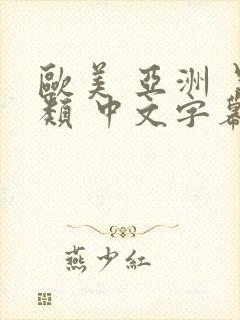 歐美 亞洲
類 中文字幕
燕少紅